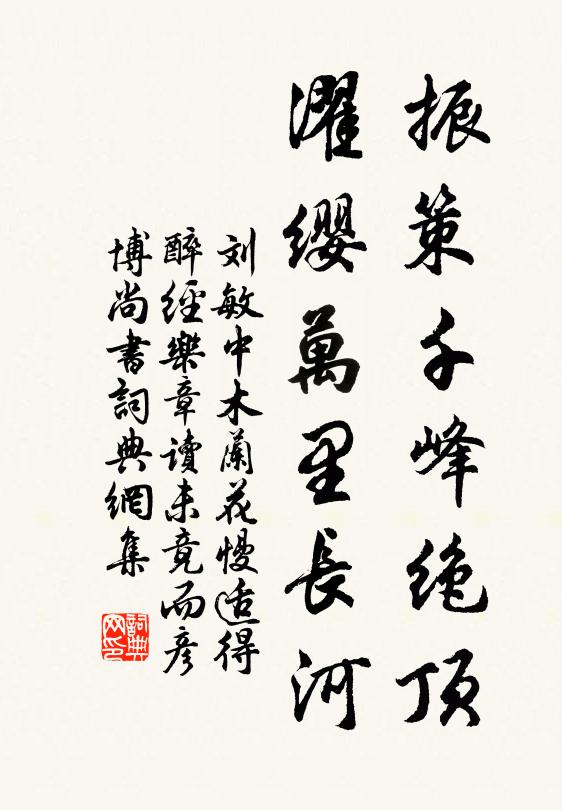 振策千峰絶顶
濯纓萬里長河
刘敏中木蘭花慢适得
醉經樂章讀未竟而彦
博尚書詞典網集
詞典网印